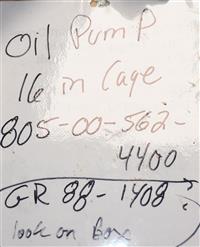 Oil Pump
16 in Cage
805-00-562-
4400
GR 88-1408
look on Box